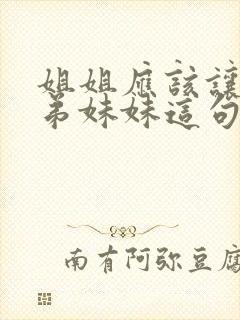 姐姐應該讓
弟妹妹這句
南有阿弥豆腐